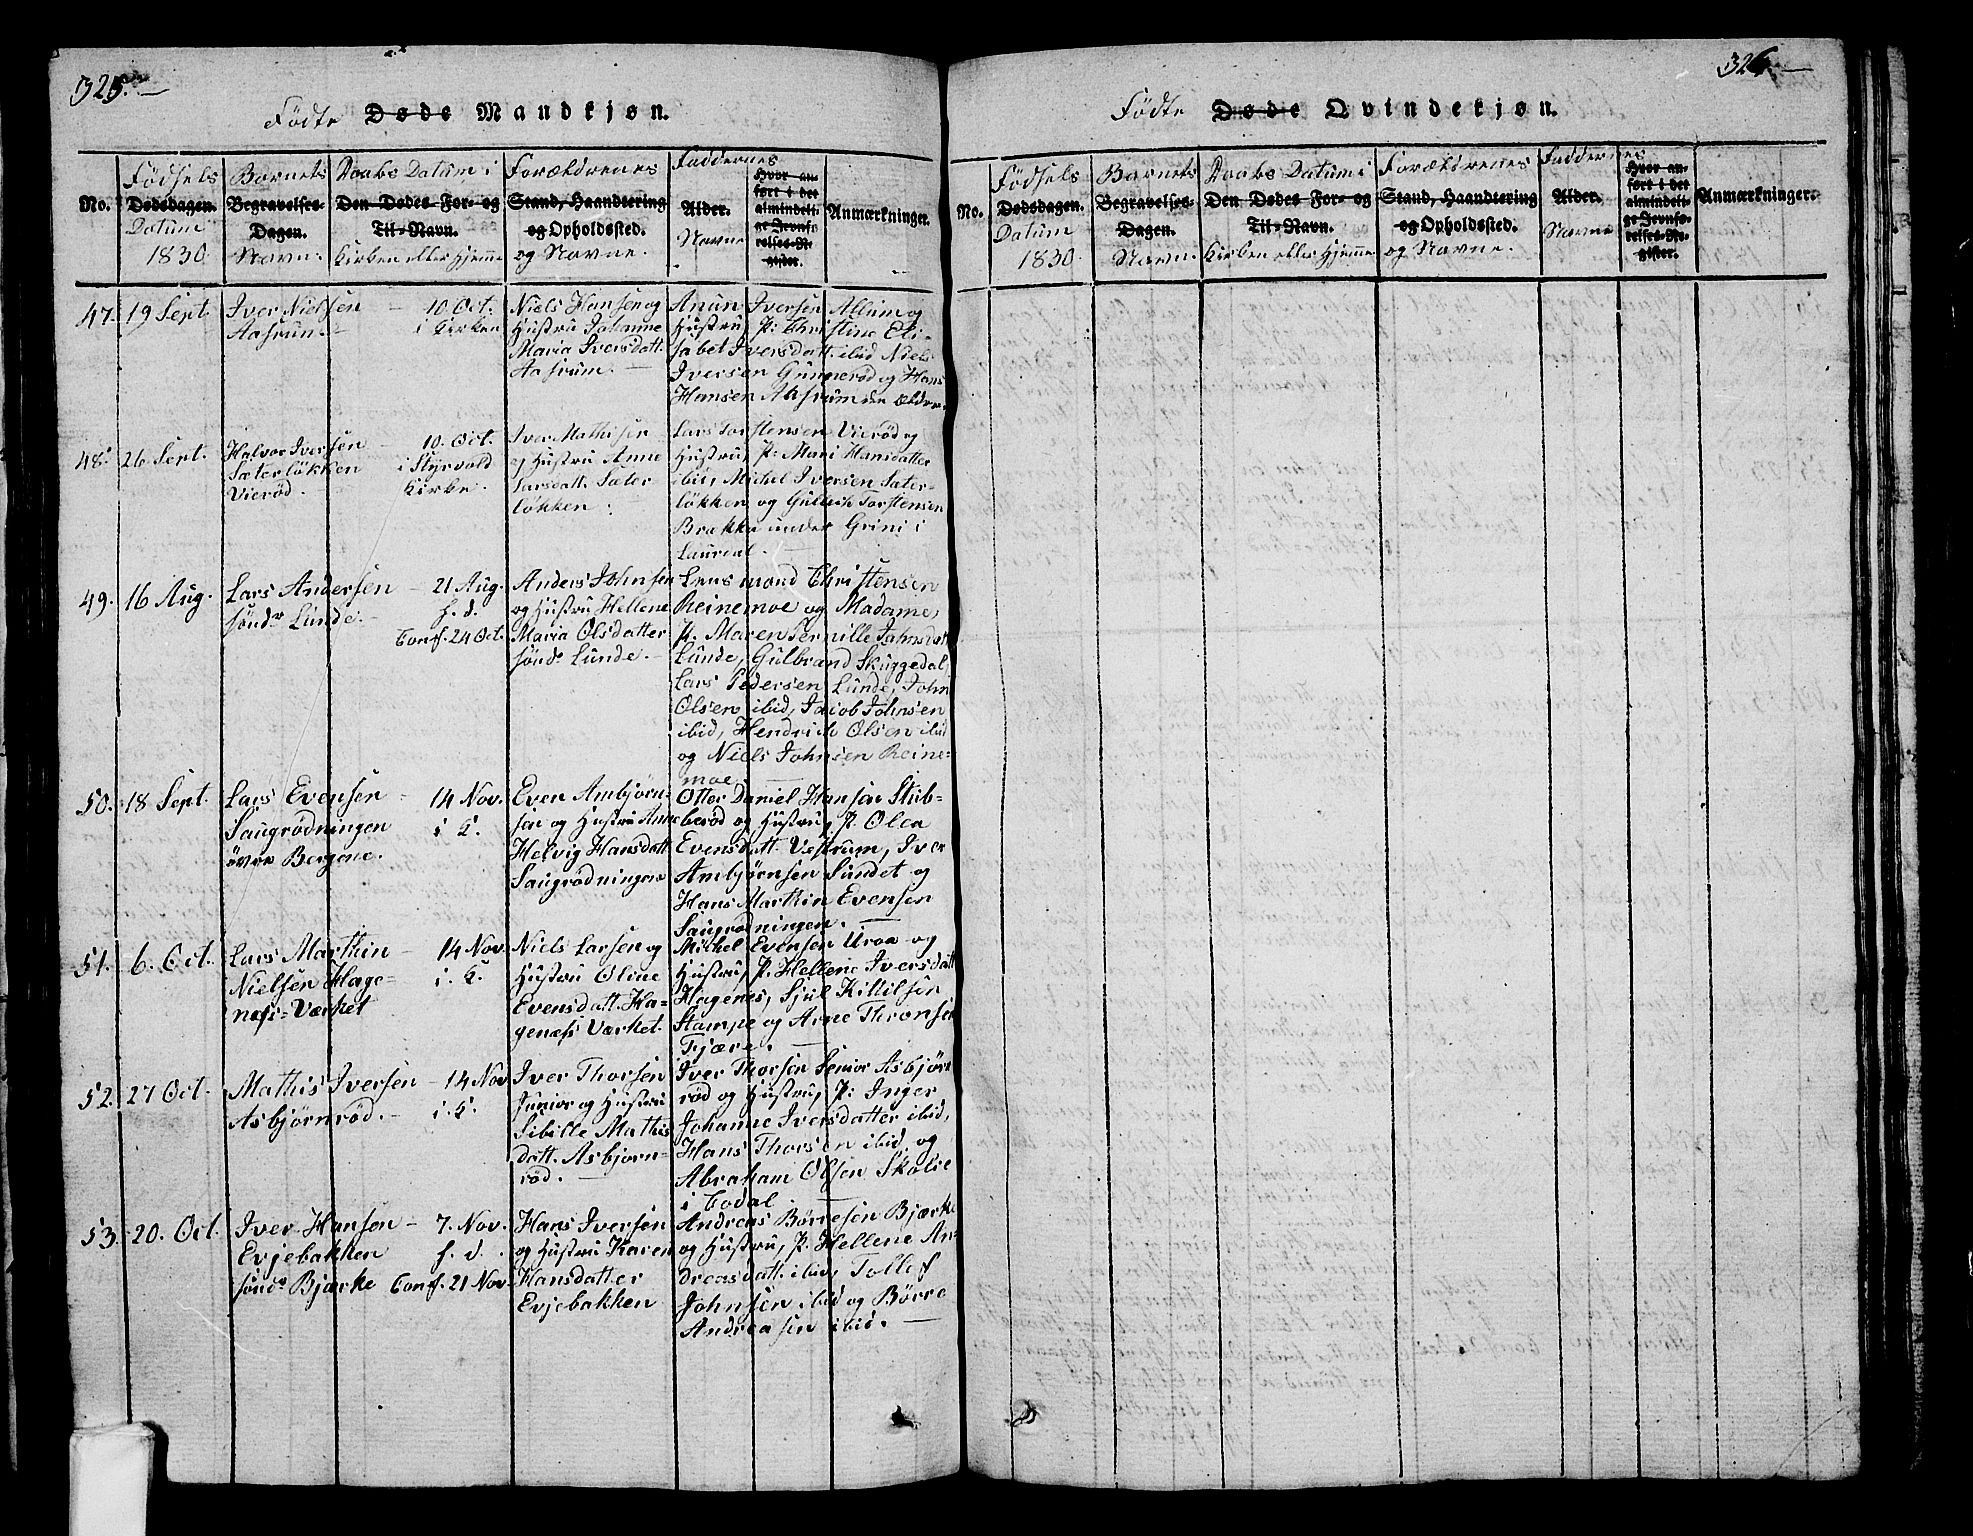 325.
Födte Døde Mandkjøn.
No.
Födsels
Dødsdagen.
Datum
1830
Barnets
Begravelses-
Dagen.
Navn.
Daabs Datum i
Den Dødes For- og
Til-Navn.
Kirken eller Hjemme
Forældrenes
Stand, Haandtering
og Opholdssted.
og Navne.
Faddernes
Alder.
Navne
Hvor an-
ført i det
almindeli-
ge Jevnfø-
relses-Re-
gister.
Anmærkninger.
47. 19 Sept.
Iver Nielsen
Aasrum.
10. Oct.
i Kirken
Niels Hansen og
Hustru Johanne
Maria Iversdatt.
Aasrum.
Anun Iversen Allum og
Hustru, P: Christine Eli-
sabet Iversdatt. ibid Niels
Iversen Gunnerød og Hans
Hansen Aasrum den ældre
48. 26 Sept.
Halvor Iversen
Sæterløkken
Vierød.
10. Oct.
i Styrvold
Kirke.
Iver Mathisen
og Hustru Anne
Larsdatt. Sæter-
løkken.
Lars Torstensen Vierød og
Hustru, P: Mari Hansdatter
ibid, Michel Iversen Sæter-
løkken og Gullich Torstensen
Brække under Grini i
Laurdal.
49. 16 Aug.
Lars Andersen
sönd. Lunde.
21 Aug.
h. d.
Conf. 24 Oct.
Anders Johnsen
og Hustru Hellene
Maria Olsdatter
sönd. Lunde.
Lensmand Christensen
Reinemoe og Madame,
P. Maren Pernille Johnsdatt
Lunde, Gulbrand Skuggedal,
Lars Pedersen Lunde, John
Olsen ibid, Jacob Johnsen
ibid, Hendrich Olsen ibid
og Niels Johnsen Reine-
moe.
50. 18 Sept.
Lars Evensen
Saugrødningen
övre Bergene.
14 Nov.
i K.
Even Ambjörn-
sen og Hustru Anne
Helvig Hansdatt
Saugrødningen
Otter Daniel Hansen Stub-
berød og Hustru, P. Olea
Evensdatt. Vestrum, Iver
Ambjørnsen Sundet og
Hans Marthin Evensen
Saugrødningen.
51. 6. Oct.
Lars Marthin
Nielsen Hage-
næs-Værket
14 Nov
i K.
Niels Larsen og
Hustru Oline
Evensdatt. Ha-
genæs Værket.
Michel Evensen Uroa og
Hustru, P. Hellene Iversdatt
Hagenes, Sjul Killilsen
Stampe og Arne Thronsen
Fjære.
52. 27 Oct.
Mathis Iversen
Asbjørnrød.
14 Nov
i K.
Iver Thorsen
Junior og Hustru
Sibille Mathis
datt. Asbjørn-
rød.
Iver Thorsen Senior Asbjørn
rød og Hustru, P: Inger
Johanne Iversdatter ibid,
Hans Thorsen ibid, og
Abraham Olsen Skolie
i Codal
53. 20. Oct.
Iver Hansen
Evjebakken
sönd. Bjærke
7. Nov.
h. d.
Conf. 21 Nov.
Hans Iversen
og Hustru Karen
Hansdatter
Evjebakken
Andreas Börresen Bjærke
og Hustru, P. Hellene An-
dreasdatt. ibid, Tollef
Johnsen ibid og Börre
Andreasen ibid.
326.
Födte Døde Qvindekjøn.
No.
Födsels
Dødsdagen.
Datum
1830.
Barnets
Begravelses-
Dagen.
Navn.
Daabs Datum i
Den Dødes For- og
Til-Navn.
Kirken eller Hjemme
Forældrenes
Stand, Haandtering
og Opholdssted.
og Navne.
Faddernes
Alder.
Navne
Hvor an-
ført i det
almindeli-
ge Jevnfø-
relses-Re-
gister.
Anmærkninger.